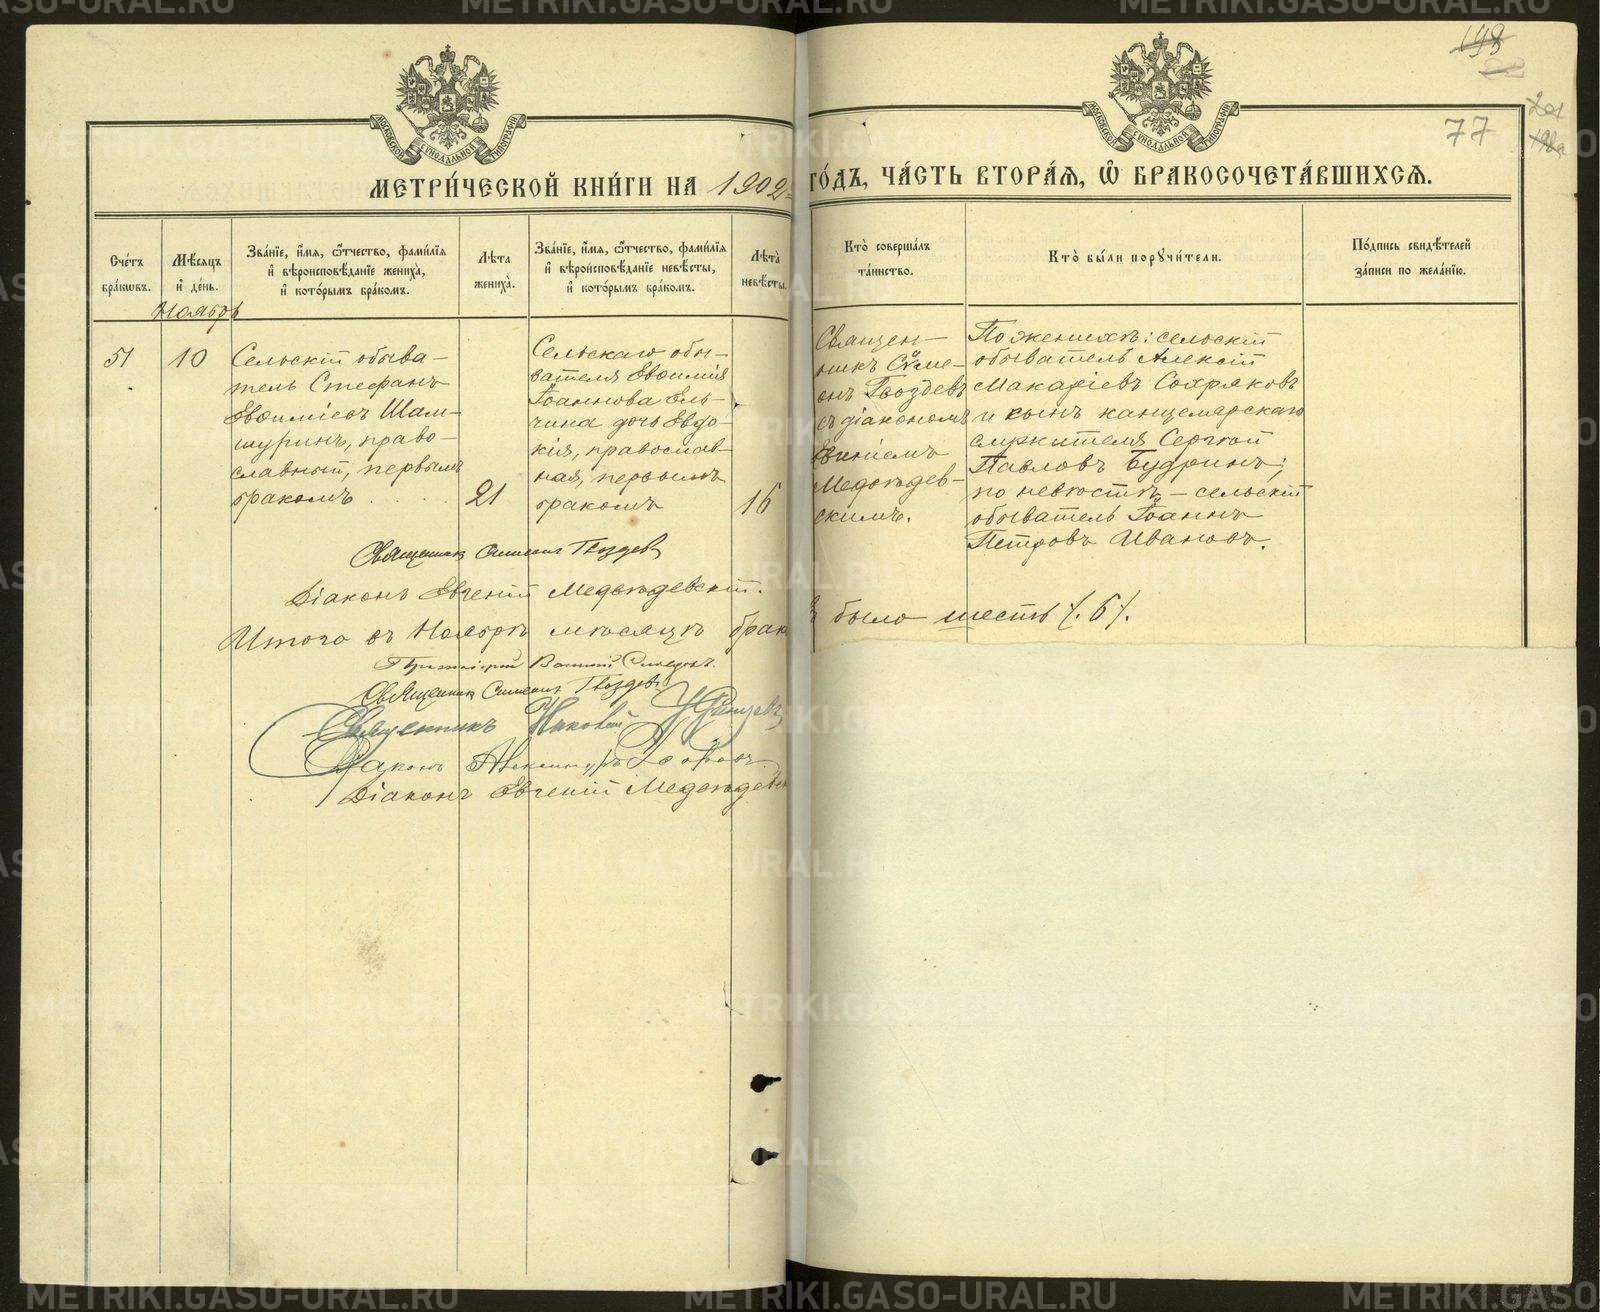 193
77
МОСКОВСКОЙ СѴНОДАЛЬНОЙ ТИПОГРАФІИ
МОСКОВСКОЙ СѴНОДАЛЬНОЙ ТИПОГРАФІИ
МЕТРИ́ЧЕСКОЙ КНИ́ГИ НА 1902 ГО́ДЪ, ЧА́СТЬ ВТОРА́Я, Ѡ БРАКОСОЧЕТА́ВШИХСѦ.
Сче́тъ бра́кѡвъ.
Мѣ́сяцъ и де́нь.
Зва́нїе, и́мя, ѻ҆́тчество, фами́лїя и вѣроисповѣ́данїе жениха̀, и кото́рымъ бра́комъ.
Лѣ́та жениха̀.
Зва́нїе, и́мя, ѻ҆́тчество, фами́лїя и вѣроисповѣ́данїе невѣ́сты, и кото́рымъ бра́комъ.
Лѣ́та невѣ́сты.
Кто̀ соверша́лъ та́инство.
Кто̀ бы́ли порꙋчи́тели.
По́дпись свидѣ́телей за́писи по жела́нїю.
Ноябрь
51
10
Сельскій обыва-
тель Стефанъ
Евѳиміевъ Шам-
шуринъ, право-
славный, первымъ
бракомъ
21
Сельскаго обы-
вателя Евѳимія
Іоаннова Ель-
чина дочь Евдо-
кія, православ-
ная, первымъ
бракомъ
16
Священ-
никъ Сѵме-
онъ Гвоздевъ
съ діакономъ
Евгеніемъ
Медвѣдев-
скимъ.
По женихѣ: сельскій
обыватель Алексій
Макаріевъ Сохряковъ
и сынъ канцелярскаго
служителя Сергѣй
Павловъ Будринъ;
по невѣстѣ – сельскій
обыватель Іоаннъ
Петровъ Ивановъ.
Священникъ Симеонъ Гвоздевъ
Діаконъ Евгеній Медвѣдевскій.
Итого въ Ноябрѣ мѣсяцѣ брак
было шесть /. 6 /.
Священникъ Симеонъ Гвоздевъ
Священникъ
Діаконъ
Діаконъ Евгеній Медвѣдев
METRIKI.GASO-URAL.RU